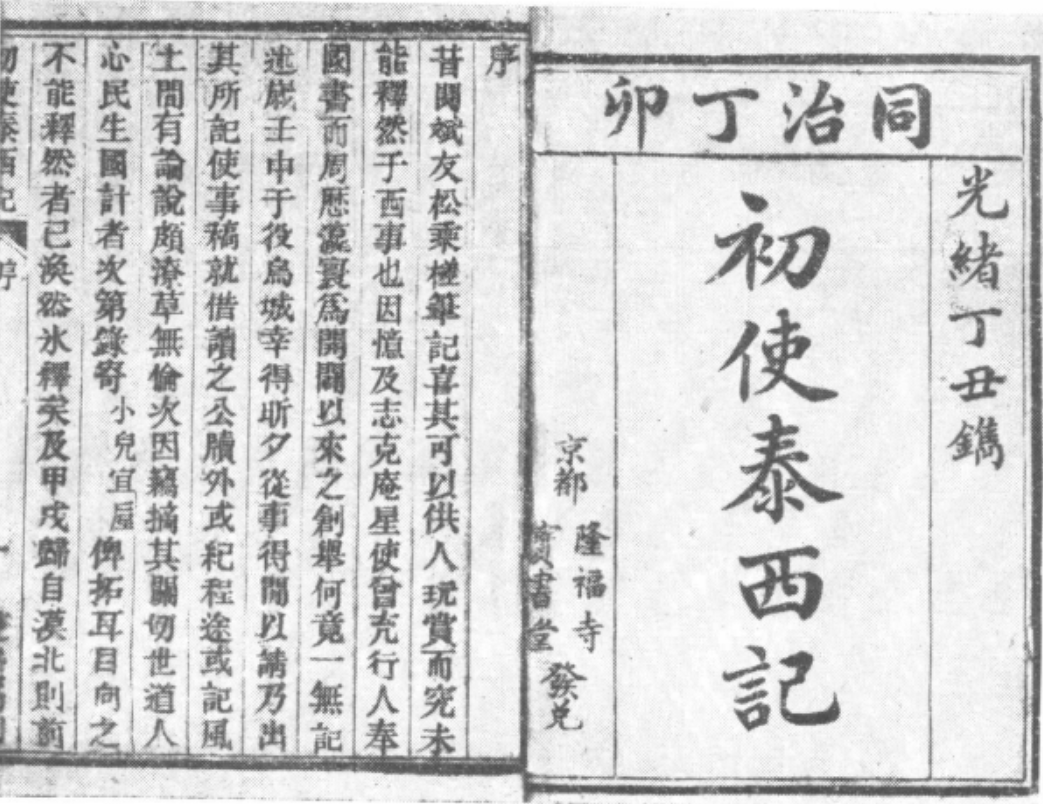 同治丁卯
光緒丁丑鐫
初使泰西記
京都
隆福寺
寶書堂
發兌
序
昔閱斌友松乘槎筆記喜其可以供人玩賞而究未
能釋然于西事也因憶及志克庵星使曾充行人奉
國書而周歷瀛寰為開闢以來之創舉何竟一無記
述歲壬申于役烏城幸得昕夕從事得閒以請乃出
其所記使事稿就借讀之公牘外或紀程途或記風
土間有論說頗潦草無倫次因竊摘其關切世道人
心民生國計者次第錄寄小兒宜垕俾拓耳目向之
不能釋然者已渙然氷釋矣及甲戌歸自漠北則前
初使泰西記 序 一